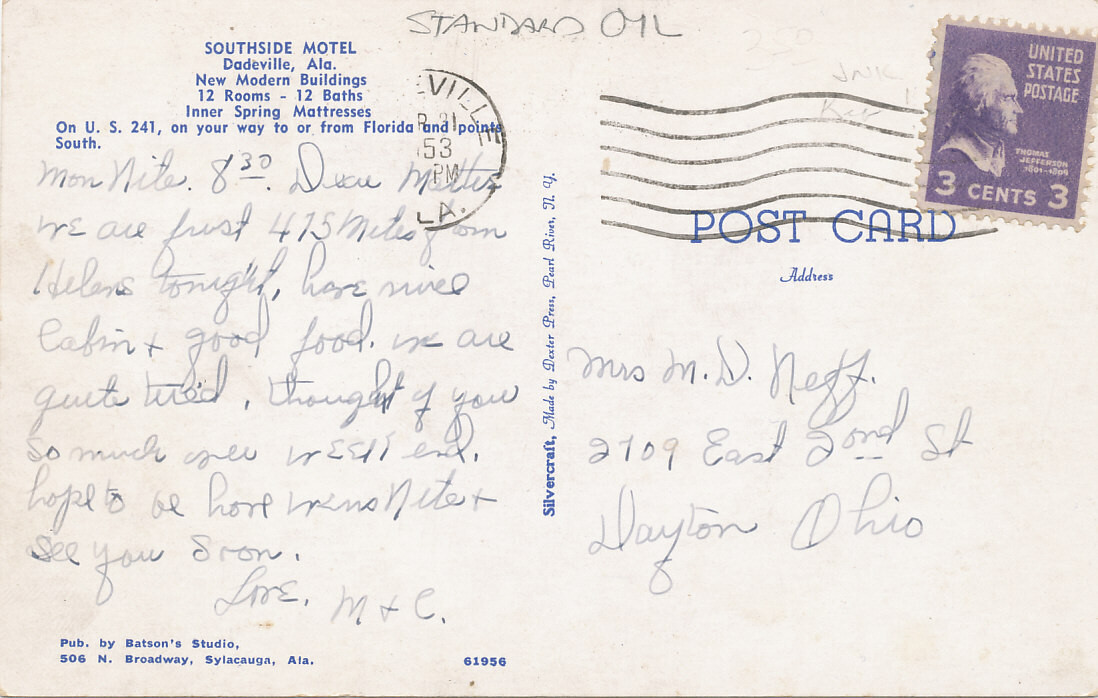 STANDARD OIL
SOUTHSIDE MOTEL
Dadeville, Ala.
New Modern Buildings
12 Rooms - 12 Baths
Inner Spring Mattresses
On U. S. 241, on your way to or from Florida and points
South.
Mon Nite. 8 30. Dear Mother
we are just 475 Miles from
Helens tonight, have nice
Cabin + good food. we are
quite tired, thought of you
so much over week end.
hope to be home Nite +
See you soon.
Love, M + C.
Pub. by Batson's Studio,
506 N. Broadway, Sylacauga, Ala.
61956
EVILLE
53
PM
LA.
Silvercraft, Made by Dexter Press, Pearl River, N. Y.
UNITED
STATES
POSTAGE
THOMAS
JEFFERSON
1801-1809
3 CENTS 3
POST CARD
Address
Mrs M. D. Neff.
2709 East 2ond St
Dayton Ohio